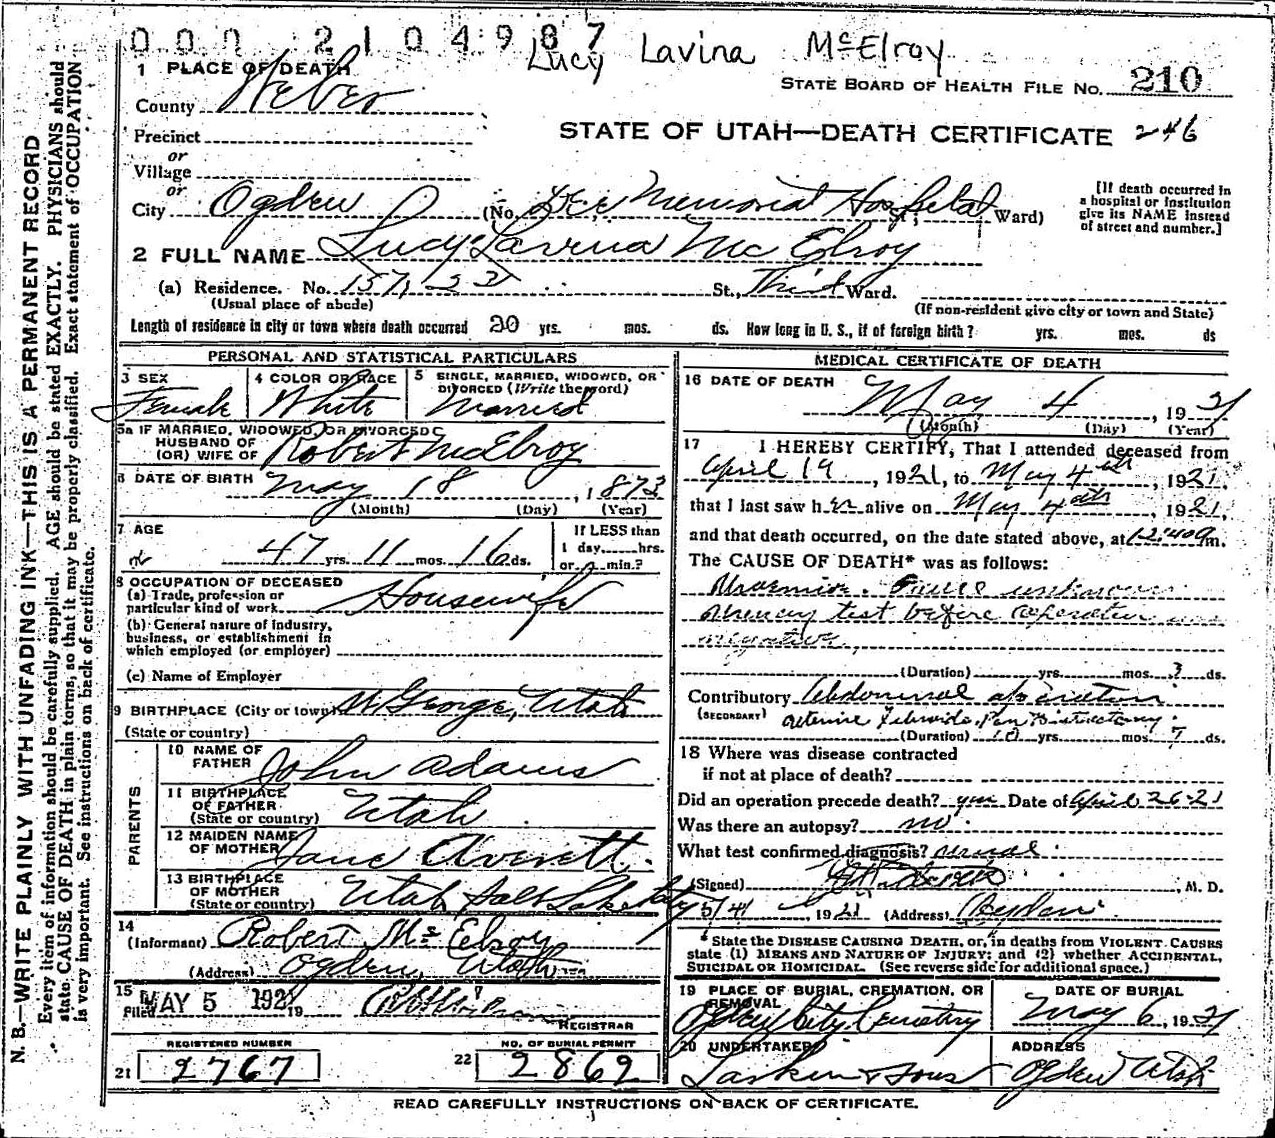 000 2104987
Lucy Lavina McElroy
1 PLACE OF DEATH
County Weber
STATE BOARD OF HEALTH FILE NO. 210
Precinct
STATE OF UTAH—DEATH CERTIFICATE 246
or
Village
or
City Ogden (No. Dee Memorial Hospital St.; Ward)
[If death occurred in
a hospital or institution
give its NAME instead
of street and number.]
2 FULL NAME Lucy Lavina McElroy
(a) Residence. No. 157, 23 St., Third Ward.
(Usual place of abode) (If non-resident give city or town and State)
Length of residence in city or town where death occurred 20 yrs. mos. ds. How long in U. S., if of foreign birth? yrs. mos. ds
PERSONAL AND STATISTICAL PARTICULARS
3 SEX 4 COLOR OR RACE 5 SINGLE, MARRIED, WIDOWED, OR
DIVORCED (Write the word)
Female White Married
5a IF MARRIED, WIDOWED, OR DIVORCED
HUSBAND OF
(OR) WIFE OF Robert McElroy
6 DATE OF BIRTH May 18, 1873
(Month) (Day) (Year)
7 AGE If LESS than
47 yrs. 11 mos. 16 ds. 1 day, hrs.
or min.?
8 OCCUPATION OF DECEASED
(a) Trade, profession or
particular kind of work Housewife
(b) General nature of industry,
business, or establishment in
which employed (or employer)
(c) Name of Employer
9 BIRTHPLACE (City or town) St George, Utah
(State or country)
PARENTS
10 NAME OF
FATHER John Adams
11 BIRTHPLACE
OF FATHER
(State or country) Utah
12 MAIDEN NAME
OF MOTHER Jane Averett.
13 BIRTHPLACE
OF MOTHER
(State or country) Utah Salt Lake City
14
(Informant) Robert McElroy
(Address) Ogden, Utah
15
Filed MAY 5 1921 19
REGISTRAR
REGISTERED NUMBER NO. OF BURIAL PERMIT
21 2767 22 2862
MEDICAL CERTIFICATE OF DEATH
16 DATE OF DEATH
May 4, 1921
(Month) (Day) (Year)
17 I HEREBY CERTIFY, That I attended deceased from
April 19, 1921, to May 4th, 1921.
that I last saw her alive on May 4th, 1921,
and that death occurred, on the date stated above, at 12:40 m.
The CAUSE OF DEATH* was as follows:
Uraemia. Cause unknown
test before operation was
negative
(Duration) yrs. mos. 3 ds.
Contributory Abdominal operation
(SECONDARY) uterine
(Duration) 10 yrs. mos. 7 ds.
18 Where was disease contracted
if not at place of death?
Did an operation precede death? yes Date of April 26-21
Was there an autopsy? no.
What test confirmed diagnosis? usual.
(Signed) , M. D.
5/4 1921 (Address) Ogden.
* State the DISEASE CAUSING DEATH, or, in deaths from VIOLENT CAUSES
state (1) MEANS AND NATURE OF INJURY; and (2) whether ACCIDENTAL,
SUICIDAL OR HOMICIDAL. (See reverse side for additional space.)
19 PLACE OF BURIAL, CREMATION, OR
REMOVAL DATE OF BURIAL
Ogden City Cemetery May 6, 1921
20 UNDERTAKER ADDRESS
Larkin & Sons Ogden Utah
READ CAREFULLY INSTRUCTIONS ON BACK OF CERTIFICATE.
N. B.—WRITE PLAINLY WITH UNFADING INK—THIS IS A PERMANENT RECORD
Every item of information should be carefully supplied. AGE should be stated EXACTLY. PHYSICIANS should
state CAUSE OF DEATH in plain terms, so that it may be properly classified. Exact statement of OCCUPATION
is very important. See instructions on back of certificate.